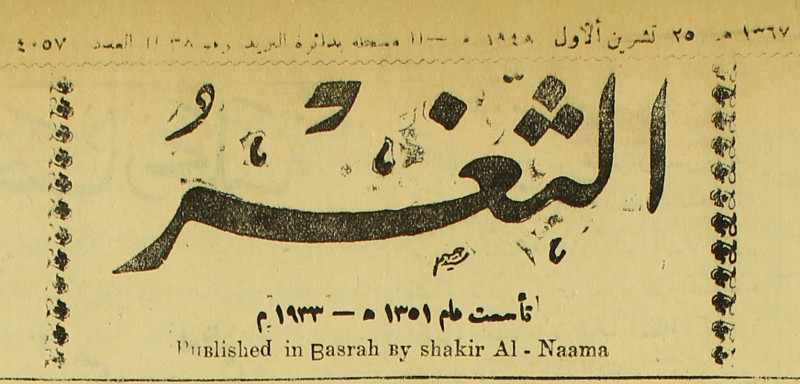 ١٣٦٧ هـ ٢٥ تشرين ألأول ١٩٤٨ م — ١١ مسجله بدائرة البريد رقم ٣٨ ١١ العدد ٤٠٥٧
الثغرُ
تأسست عام ١٣٥١ هـ — ١٩٣٣ م
Published in Basrah By shakir Al - Naama